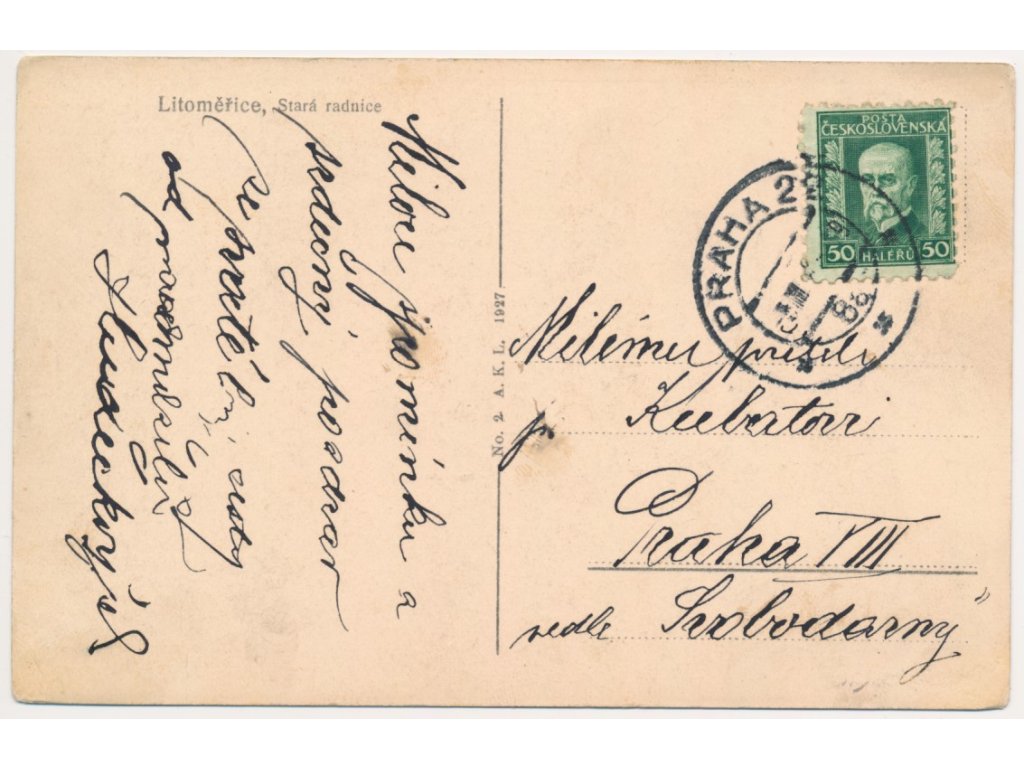 Litoměřice, Stará radnice
Milou vzpomínku a
srdečný pozdrav
ze svaté cesty
od
Hudeckých
No. 2 A. K. L. 1927.
POŠTA
ČESKOSLOVENSKÁ
50 HALÉŘŮ 50
PRAHA 2
Milému příteli
p. Kubertovi
Praha VIII
vedle „Svobodarny"